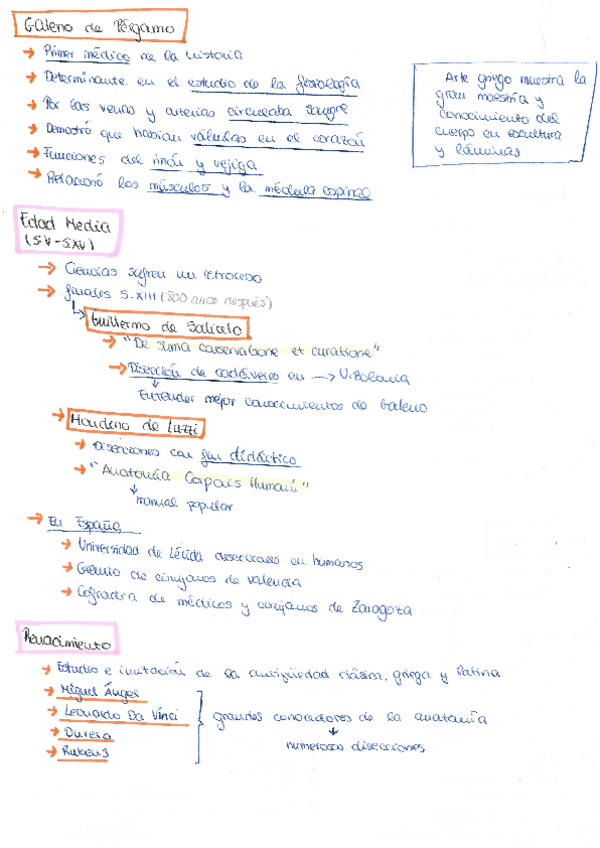 Galeno de Pérgamo
→ Primer médico de la historia
→ Determinante en el estudio de la fisiología
→ Por las venas y arterias circulaba sangre
→ Demostró que habían válvulas en el corazón
→ Funciones del riñón y vejiga
→ Relacionó los músculos y la médula espinal
Arte griego muestra la
gran maestría y
conocimiento del
cuerpo en escultura
y láminas
Edad Media
(S.V-S.XV)
→ Ciencias sufren un retroceso
→ finales S.XIII (800 años después)
Guillermo de Saliceto
→ "De suma conservatione et curatione"
→ Disección de cadáveres en → U.Bolonia
Entender mejor conocimientos de Galeno
→ Mondino de Luzzi
→ Disecciones con fin didáctico
→ "Anatomía Corporis Humani"
manual popular
→ En España
→ Universidad de Lérida disecciones en humanos
→ Gremio de cirujanos de Valencia
→ Cofradía de médicos y cirujanos de Zaragoza
Renacimiento
→ Estudio e imitación de la antigüedad clásica, griega y latina
→ Miguel Ángel
→ Leonardo Da Vinci
grandes conocedores de la anatomía
→ Durero
→ Rubens
numerosas disecciones